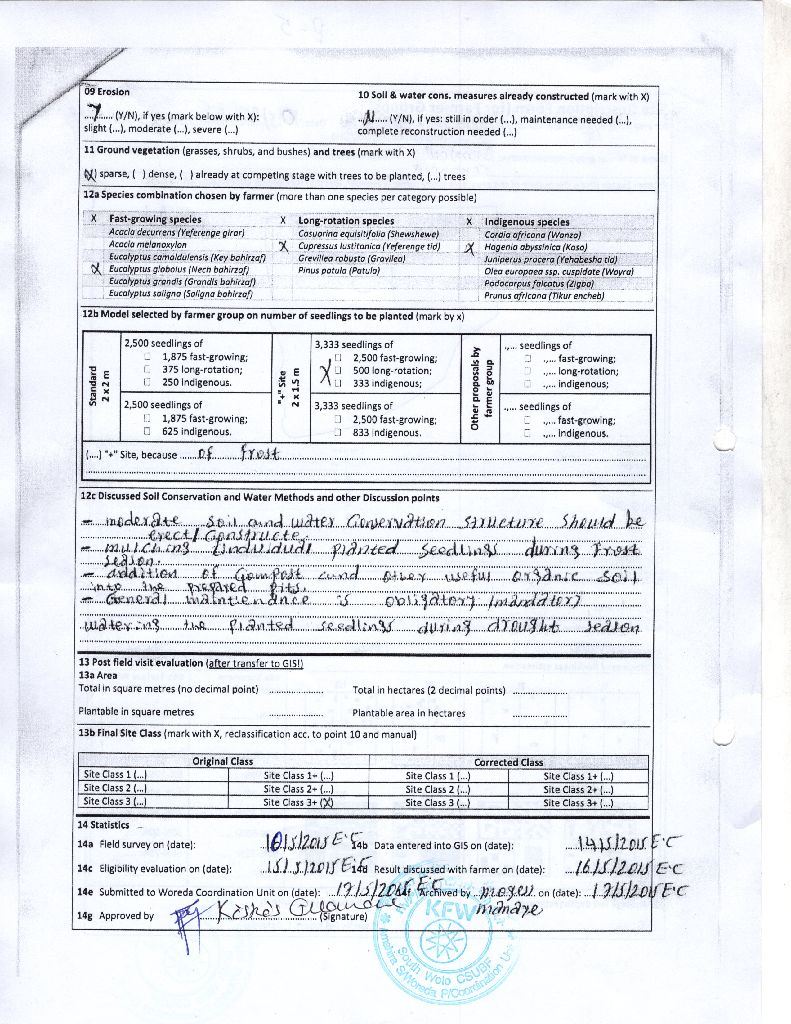 09 Erosion
10 Soil & water cons. measures already constructed (mark with X)
..Y..... (Y/N), if yes (mark below with X):
..N..... (Y/N), if yes: still in order (...), maintenance needed (...),
slight (...), moderate (...), severe (...)
complete reconstruction needed (...)
11 Ground vegetation (grasses, shrubs, and bushes) and trees (mark with X)
(X) sparse, ( ) dense, ( ) already at competing stage with trees to be planted, (...) trees
12a Species combination chosen by farmer (more than one species per category possible)
X Fast-growing species X Long-rotation species X Indigenous species
Acacia decurrens (Yeferenge girar) Casuarina equisitifolia (Shewshewe) Cordia africana (Wanza)
Acacia melanoxylon X Cupressus lustitanica (Yeferenge tid) X Hagenia abyssinica (Koso)
Eucalyptus camaldulensis (Key bahirzaf) Grevillea robusta (Gravilea) Juniperus procera (Yehabesha tid)
X Eucalyptus globolus (Nech bahirzaf) Pinus patula (Patula) Olea europaea ssp. cuspidate (Woyra)
Eucalyptus grandis (Grandis bahirzaf) Podocarpus falcatus (Zigba)
Eucalyptus saligna (Saligna bahirzaf) Prunus africana (Tikur encheb)
12b Model selected by farmer group on number of seedlings to be planted (mark by x)
Standard 2 x 2 m
2,500 seedlings of
1,875 fast-growing;
375 long-rotation;
250 indigenous.
2,500 seedlings of
1,875 fast-growing;
625 indigenous.
"+" Site 2 x 1.5 m
3,333 seedlings of
2,500 fast-growing;
X 500 long-rotation;
333 indigenous;
3,333 seedlings of
2,500 fast-growing;
833 indigenous.
Other proposals by farmer group
.,... seedlings of
.,... fast-growing;
.,... long-rotation;
.,... indigenous;
.,... seedlings of
.,... fast-growing;
.,... indigenous.
(....) "+" Site, because ...... of frost
12c Discussed Soil Conservation and Water Methods and other Discussion points
- moderate soil and water Conservation structure should be
erect/ Constructe.
- mulching individual planted seedlings during frost
season.
- addition of Compost and other useful organic soil
into the prepared pits.
- General maintenance is obligatory (mandatory
watering the planted seedlings during drought season
13 Post field visit evaluation (after transfer to GIS!)
13a Area
Total in square metres (no decimal point) .................. Total in hectares (2 decimal points) ..................
Plantable in square metres .................. Plantable area in hectares ..................
13b Final Site Class (mark with X, reclassification acc. to point 10 and manual)
Original Class Corrected Class
Site Class 1 (...) Site Class 1+ (...) Site Class 1 (...) Site Class 1+ (...)
Site Class 2 (...) Site Class 2+ (...) Site Class 2 (...) Site Class 2+ (...)
Site Class 3 (...) Site Class 3+ (X) Site Class 3 (...) Site Class 3+ (...)
14 Statistics
14a Field survey on (date): 10/5/2015 E.C 14b Data entered into GIS on (date): 14/5/2015 E.C
14c Eligibility evaluation on (date): 15/5/2015 E.C 14d Result discussed with farmer on (date): 16/5/2015 E.C
14e Submitted to Woreda Coordination Unit on (date): 17/5/2015 E.C Archived by on (date): 17/5/2015 E.C
14g Approved by (Signature)
KFW
South Wolo CSUBF